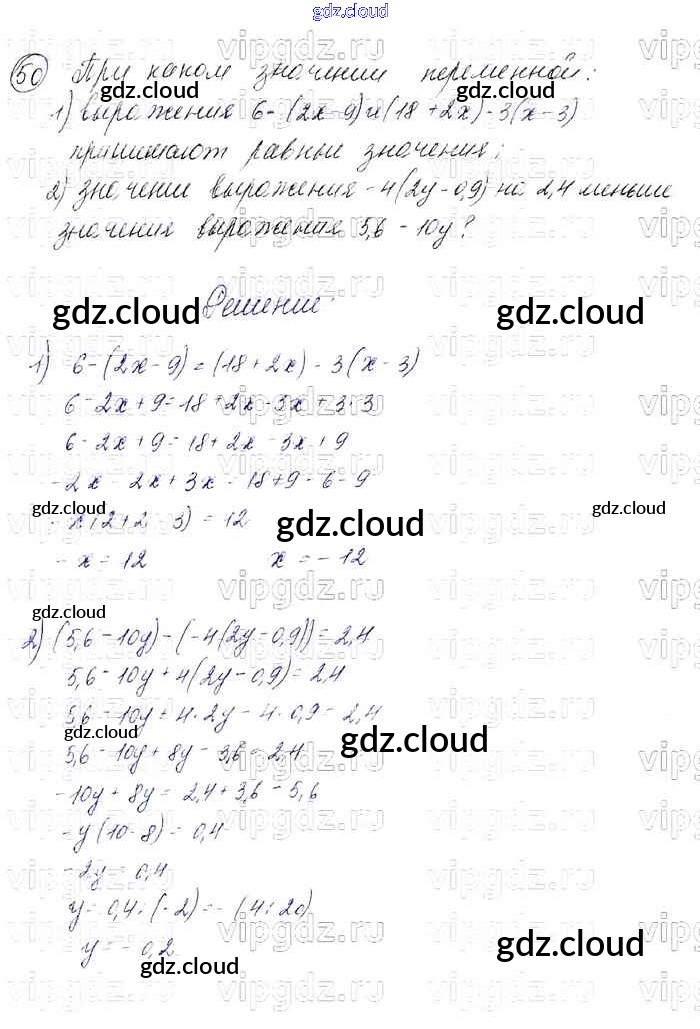 gdz.cloud
50 При каком значении переменной:
gdz.cloud gdz.cloud
1) выражения 6 - (2x - 9) и (18 + 2x) - 3(x - 3)
принимают равные значения;
2) значение выражения -4(2y - 0,9) на 2,4 меньше
значения выражения 5,6 - 10y?
gdz.cloud gdz.cloud
Решение:
gdz.cloud gdz.cloud
1) 6 - (2x - 9) = (18 + 2x) - 3(x - 3)
6 - 2x + 9 = 18 + 2x - 3x + 3·3
6 - 2x + 9 = 18 + 2x - 3x + 9
-2x - 2x + 3x = 18 + 9 - 6 - 9
gdz.cloud gdz.cloud gdz.cloud
-x(2 + 2 - 3) = 12
-x = 12 x = -12
gdz.cloud
2) (5,6 - 10y) - (-4(2y - 0,9)) = 2,4
5,6 - 10y + 4(2y - 0,9) = 2,4
5,6 - 10y + 4·2y - 4·0,9 = 2,4
gdz.cloud gdz.cloud
5,6 - 10y + 8y - 3,6 = 2,4
-10y + 8y = 2,4 + 3,6 - 5,6
-y(10 - 8) = 0,4
-2y = 0,4
y = 0,4 : (-2) = - (4 : 20)
y = -0,2
gdz.cloud gdz.cloud